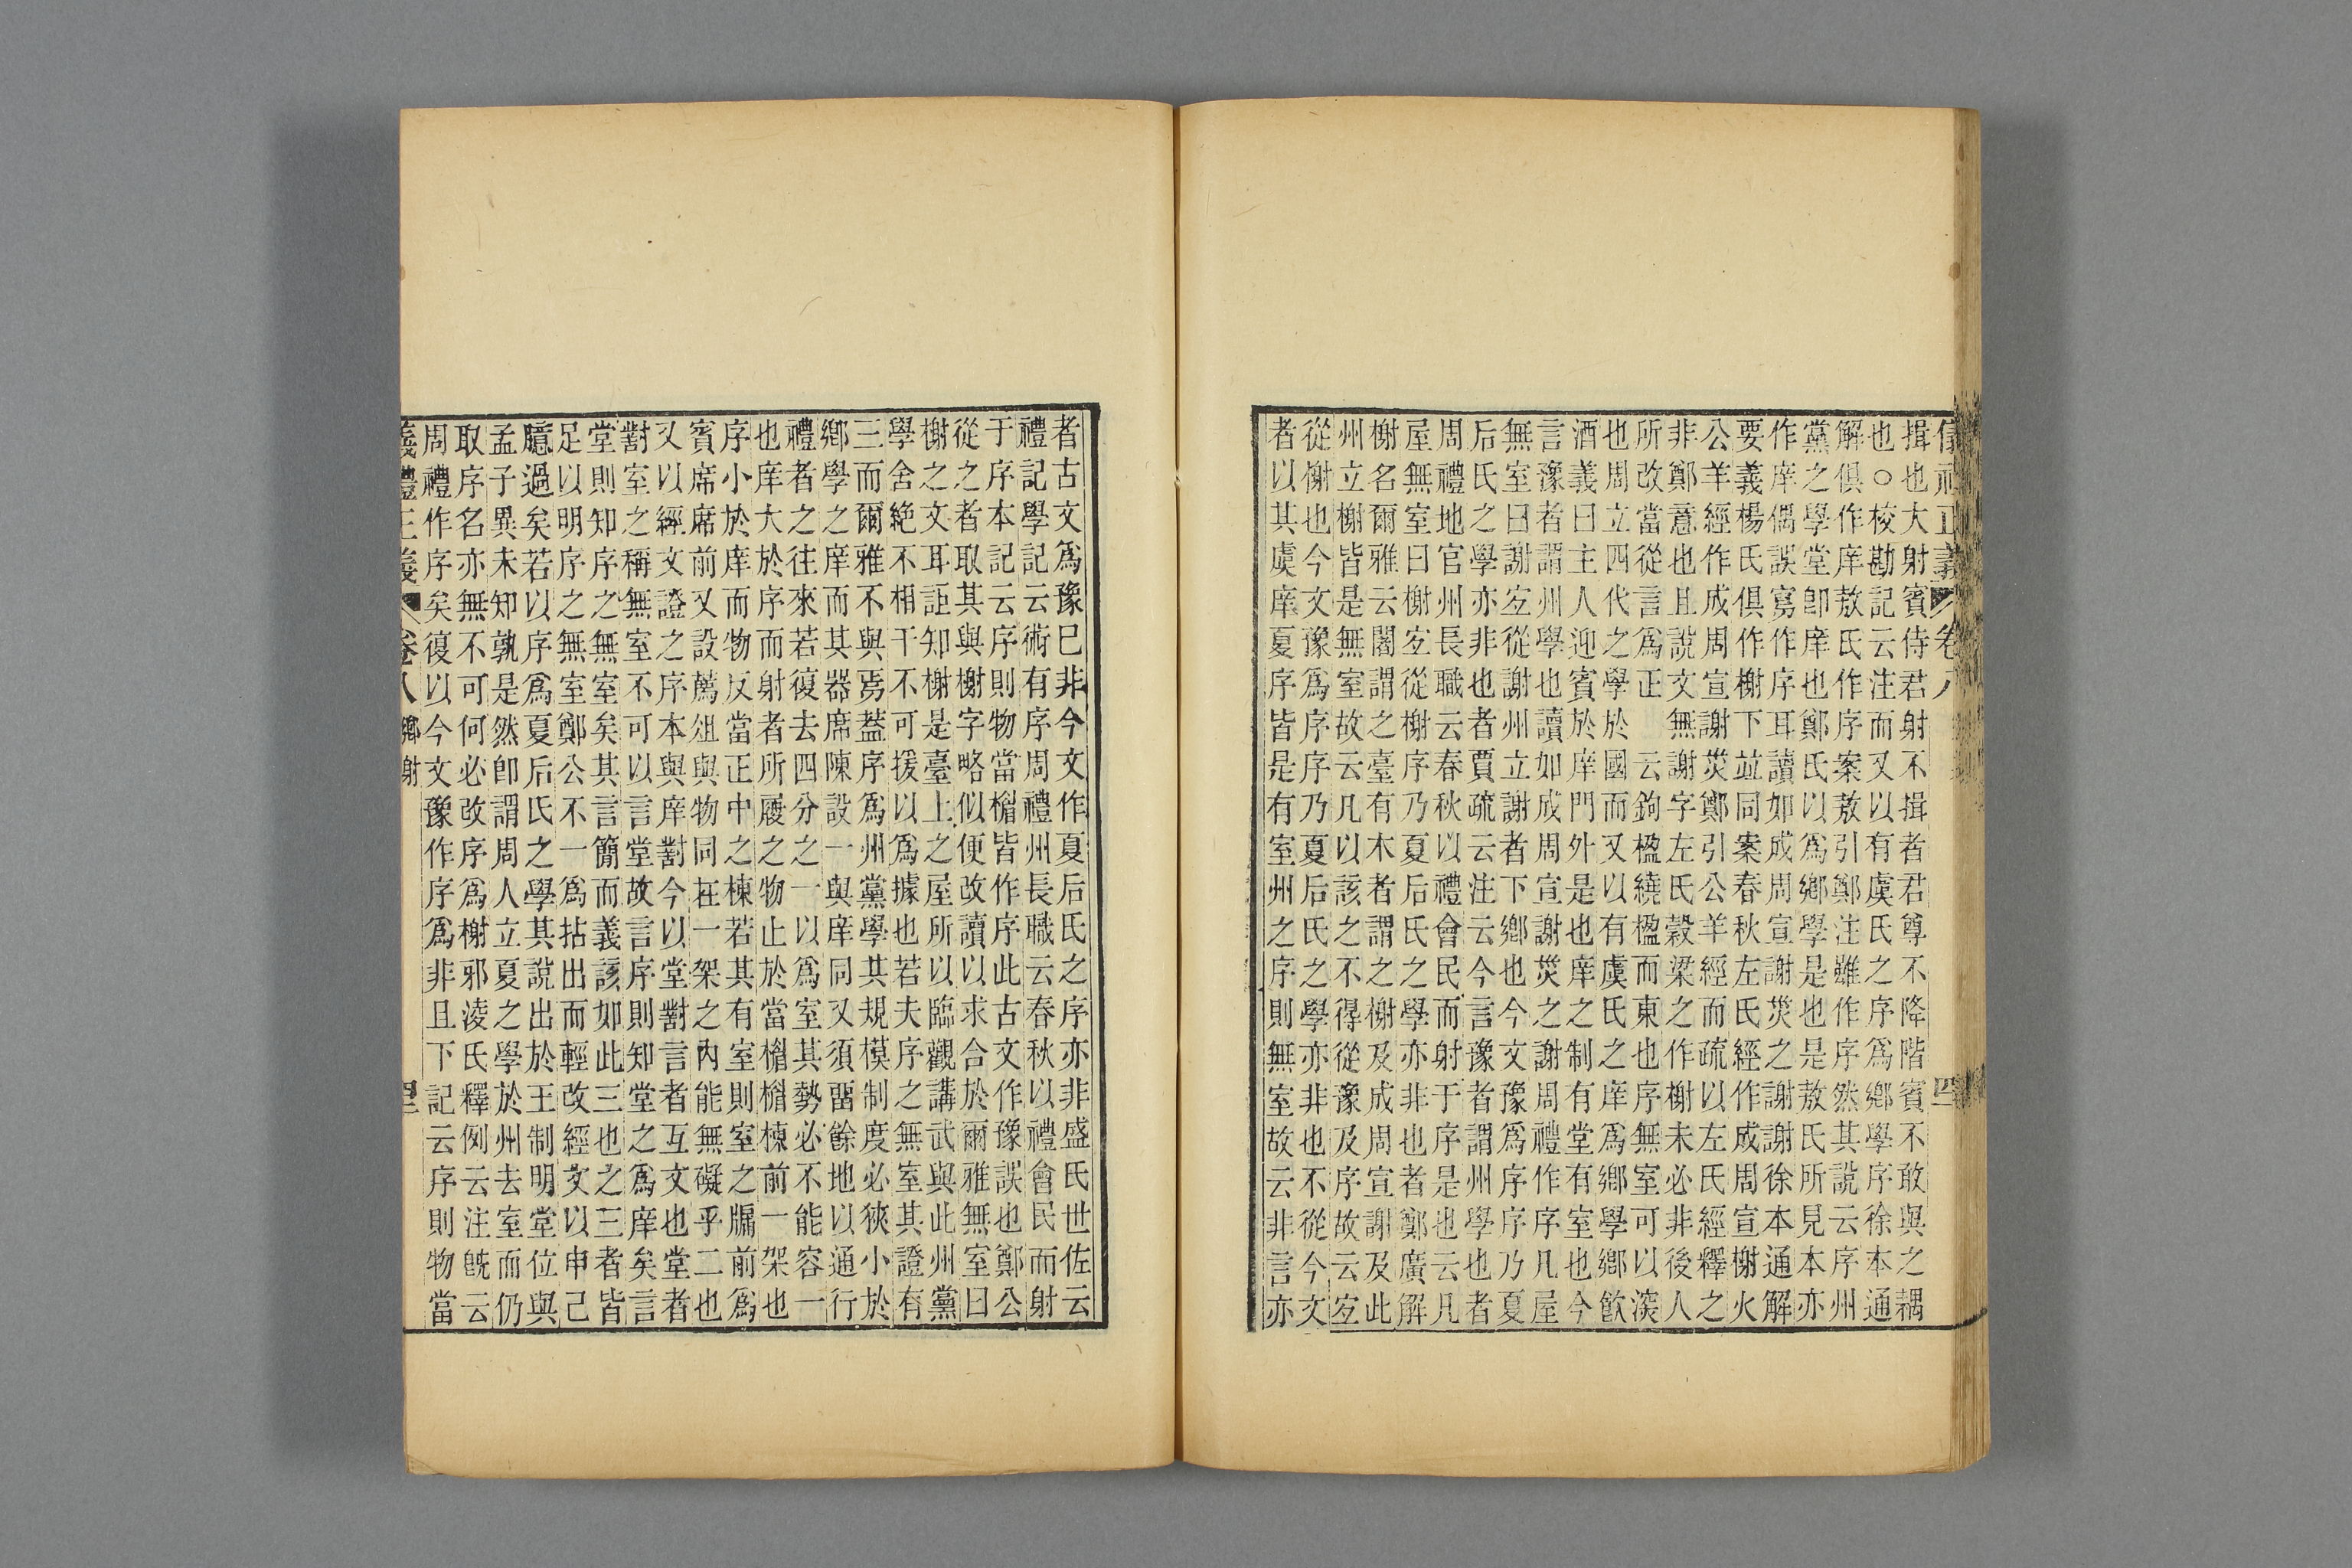 正義 卷八
揖也大射賓侍君射不揖者君尊不降階賓不敢與之耦
也○校勘記云注而又以有虞氏之序爲鄉學序徐本通
解俱作庠敖氏作序案敖引鄭注雖作序然其說云序州
黨之學堂卽庠也鄭氏以爲鄉學是也是敖氏所見本亦
作庠偶誤寫作序耳讀如成周宣謝災之謝謝徐本通解
要義楊氏俱作榭下並同案春秋左氏經作成周宣榭火
公羊經作成周宣謝災鄭引公羊經而疏以左氏經釋之
非鄭意也且說文無謝字左氏穀梁之作榭未必非後人
所改當從言爲正　云鉤楹繞楹而東也序無室可以深
也周立四代之學於國而又以有虞氏之庠爲鄉學鄉飮
酒義曰主人迎賓於庠門外是也庠之制有堂有室也今
言豫者謂州學也讀如成周宣謝災之謝周禮作序凡屋
無室曰謝宐從謝州立謝者下鄉也今文豫爲序序乃夏
后氏之學亦非也者賈疏云注云今言豫者謂州學也者
周禮地官州長職云春秋以禮會民而射于序是也云凡
屋無室曰榭宐從榭序乃夏后氏之學亦非也者鄭廣解
榭名爾雅云闍謂之臺有木者謂之榭及成周宣謝及此
州立榭皆是無室故云凡以該之不得從豫及序故云宐
從榭也今文豫爲序序乃夏后氏之學亦非也不從今文
者以其虞庠夏序皆是有室州之序則無室故云非言亦
者古文爲豫巳非今文作夏后氏之序亦非盛氏世佐云
禮記學記云術有序周禮州長職云春秋以禮會民而射
于序本記云序則物當楣皆作序此古文作豫誤也鄭公
從之者取其與榭字略似便改讀以求合於爾雅無室曰
榭之文耳詎知榭是臺上之屋所以臨觀講武與此州黨
學舍絶不相干不可援以爲據也若夫序之無室其證有
三而爾雅不與焉蓋序爲州黨學其規模制度必狹小於
鄉學之庠而其器席陳設一與庠同又須畱餘地以通行
禮者之往來若復去四分之一以爲室其勢必不能容一
也庠大於序而射者所履之物止於當楣楣棟前一架也
序小於庠而物反當正中之棟若其有室則室之牖前爲
賓席席前又設薦俎與物同在一架之內能無礙乎二也
又以經文證之序本與庠對今以堂對言者互文也堂者
對室之稱無室不可以言堂故言序則知堂之爲庠矣言
堂則知序之無室矣其言簡而義該如此三也之三者皆
足以明序之無室鄭公不一爲拈出而輕改經文以申己
臆過矣若以序爲夏后氏之學其說出於王制明堂位與
孟子異未知孰是然卽謂周人立夏之學於州去室而仍
取序名亦無不可何必改序爲榭邪淩氏釋例云注旣云
周禮作序矣復以今文豫作序爲非且下記云序則物當
儀禮正義 卷八 鄉射